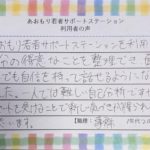 あおもり若者サポートステーション
利用者の声
おもり若者サポートステーションを利用
分の得意なことを整理でき、面
でも自信を持って話せるようにな
た。一人では難しい自己分析ですが
ートを受けることで新しい気づきが得られ
思います。
【職種：事務